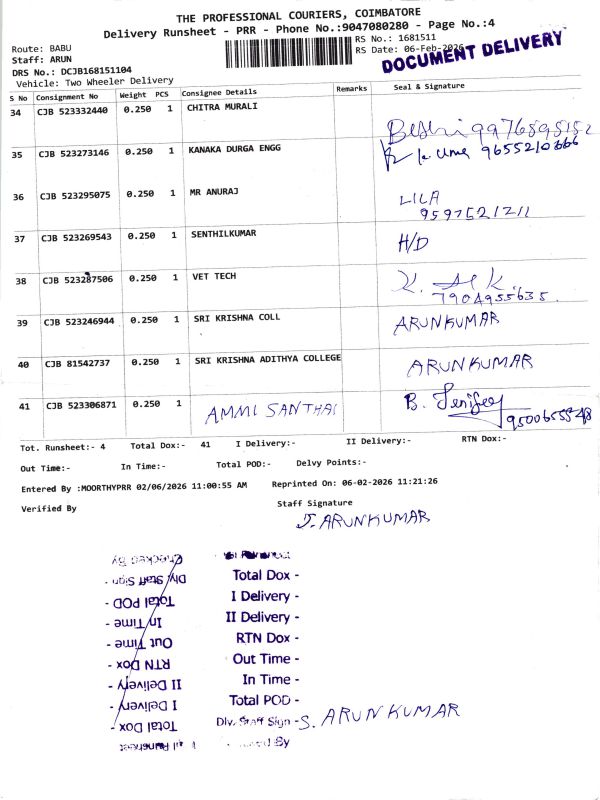 THE PROFESSIONAL COURIERS, COIMBATORE
Delivery Runsheet - PRR - Phone No.:9047080280 - Page No.:4
Route: BABU
RS No.: 1681511
Staff: ARUN
RS Date: 06-Feb-2026
DOCUMENT DELIVERY
DRS No.: DCJB168151104
Vehicle: Two Wheeler Delivery
S No Consignment No Weight PCS Consignee Details Remarks Seal & Signature
34 CJB 523332440 0.250 1 CHITRA MURALI
35 CJB 523273146 0.250 1 KANAKA DURGA ENGG 9655210666
36 CJB 523295075 0.250 1 MR ANURAJ LILA
9597521211
37 CJB 523269543 0.250 1 SENTHILKUMAR H/D
38 CJB 523287506 0.250 1 VET TECH
7904955635
39 CJB 523246944 0.250 1 SRI KRISHNA COLL ARUNKUMAR
40 CJB 81542737 0.250 1 SRI KRISHNA ADITHYA COLLEGE ARUNKUMAR
41 CJB 523306871 0.250 1 AMMI SANTHAI B. Jenifer
Tot. Runsheet:- 4 Total Dox:- 41 I Delivery:- II Delivery:- RTN Dox:-
Out Time:- In Time:- Total POD:- Delvy Points:-
Entered By :MOORTHYPRR 02/06/2026 11:00:55 AM Reprinted On: 06-02-2026 11:21:26
Verified By Staff Signature
J. ARUNKUMAR
Total Dox -
I Delivery -
II Delivery -
RTN Dox -
Out Time -
In Time -
Total POD -
Dlv. Staff Sign - S. ARUNKUMAR
Checked By
Dlv. Staff Sign -
Total POD -
In Time -
Out Time -
RTN Dox -
II Delivery -
I Delivery -
Total Dox -